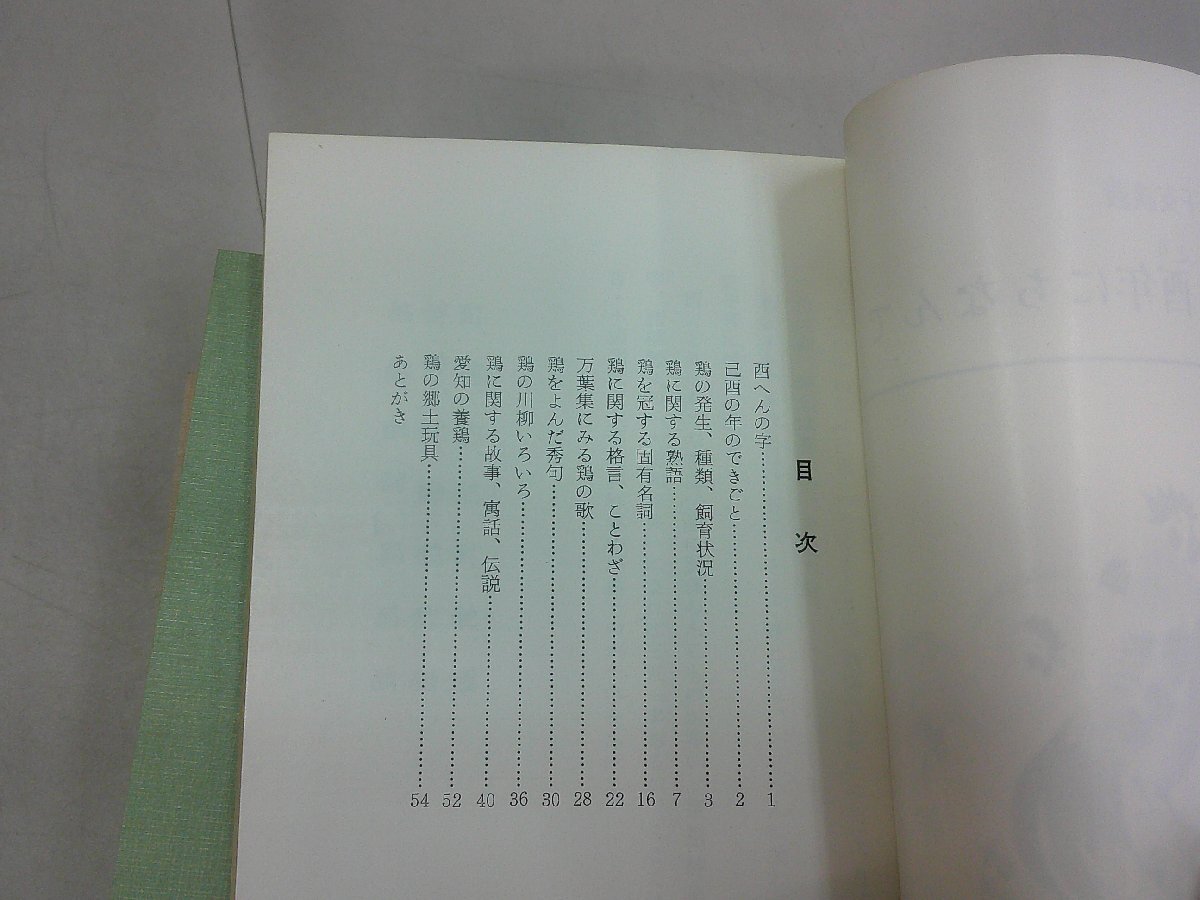 目次
酉へんの字 1
己酉の年のできごと 2
鶏の発生、種類、飼育状況 3
鶏に関する熟語 7
鶏を冠する固有名詞 16
鶏に関する格言、ことわざ 22
万葉集にみる鶏の歌 28
鶏をよんだ秀句 30
鶏の川柳いろいろ 36
鶏に関する故事、寓話、伝説 40
愛知の養鶏 52
鶏の郷土玩具 54
あとがき